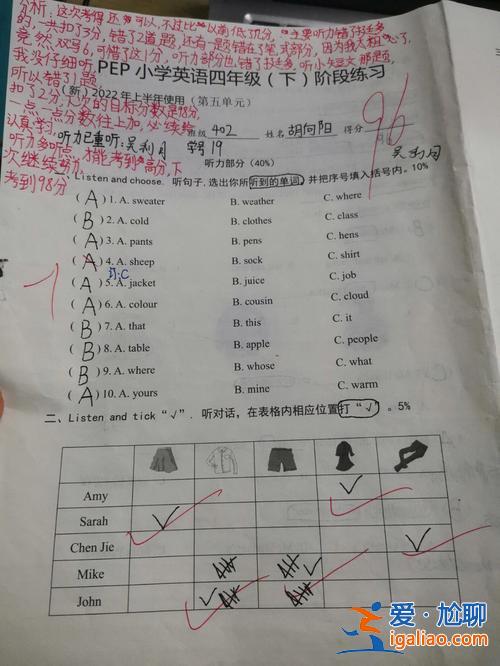 分析：这次考得还可以，不过比以前低了几分，主要听力错了挺多
的，一共扣了3分，错了2道题，还有一题错在了笔试部分，因为我太粗心了，
竟然双写6，可惜了这1分，听力部分也错了挺多，听小短文那题，
我没仔细听，
所以错了1题，
扣了2分，下次的目标分数是98分，
一点一点分数往上加，必须
认真学，听力已重听：吴利月
听力多听点，才能考到高分，下
次继续努力，
考到98分
PEP 小学英语四年级（下）阶段练习
（新）2022年上半年使用（第五单元）
班级 402 姓名 胡向阳 得分 96
学号 19
吴利月
听力部分（40%）
、Listen and choose. 听句子,选出你所听到的单词,并把序号填入括号内。10%
( A ) 1. A. sweater B. weather C. where
( B ) 2. A. cold B. clothes C. class
( A ) 3. A. pants B. pens C. hens
( A ) 4. A. sheep B. sock C. shirt
订:C
( A ) 5. A. jacket B. juice C. job
( A ) 6. A. colour B. cousin C. cloud
( B ) 7. A. that B. this C. it
( B ) 8. A. table B. apple C. people
( B ) 9. A. where B. whose C. what
( A ) 10. A. yours B. mine C. warm
-1
二、Listen and tick “√”. 听对话，在表格内相应位置打“√”。5%
Amy
Sarah
Chen Jie
Mike
John
爱·尬聊
igaliao.com